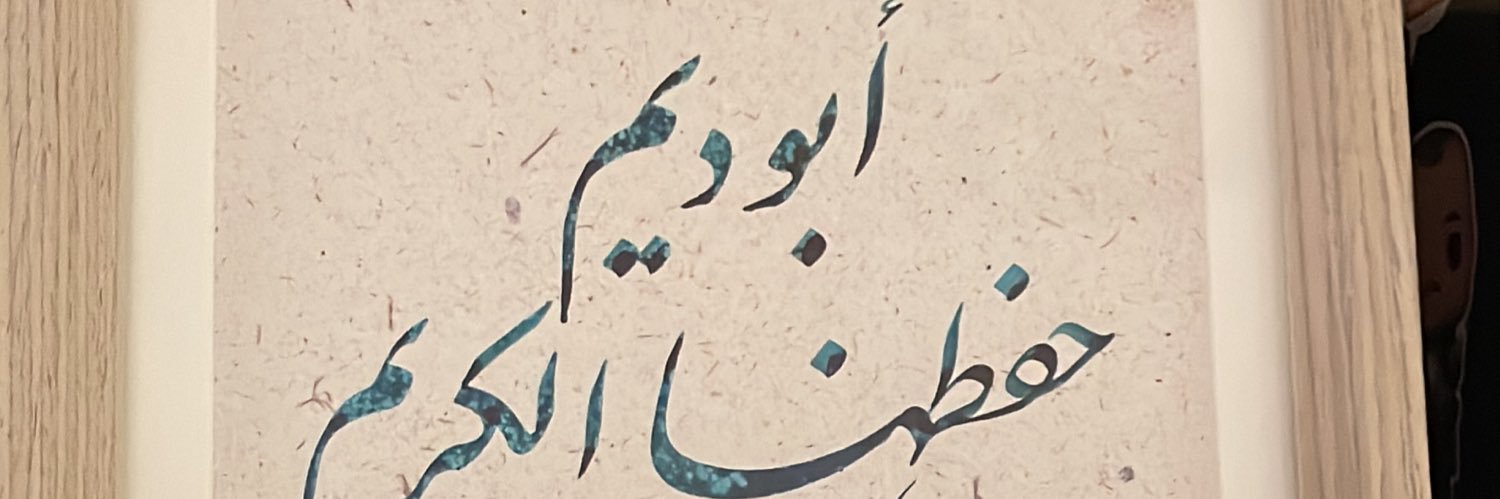 أبو ديم
حفظها الكريم